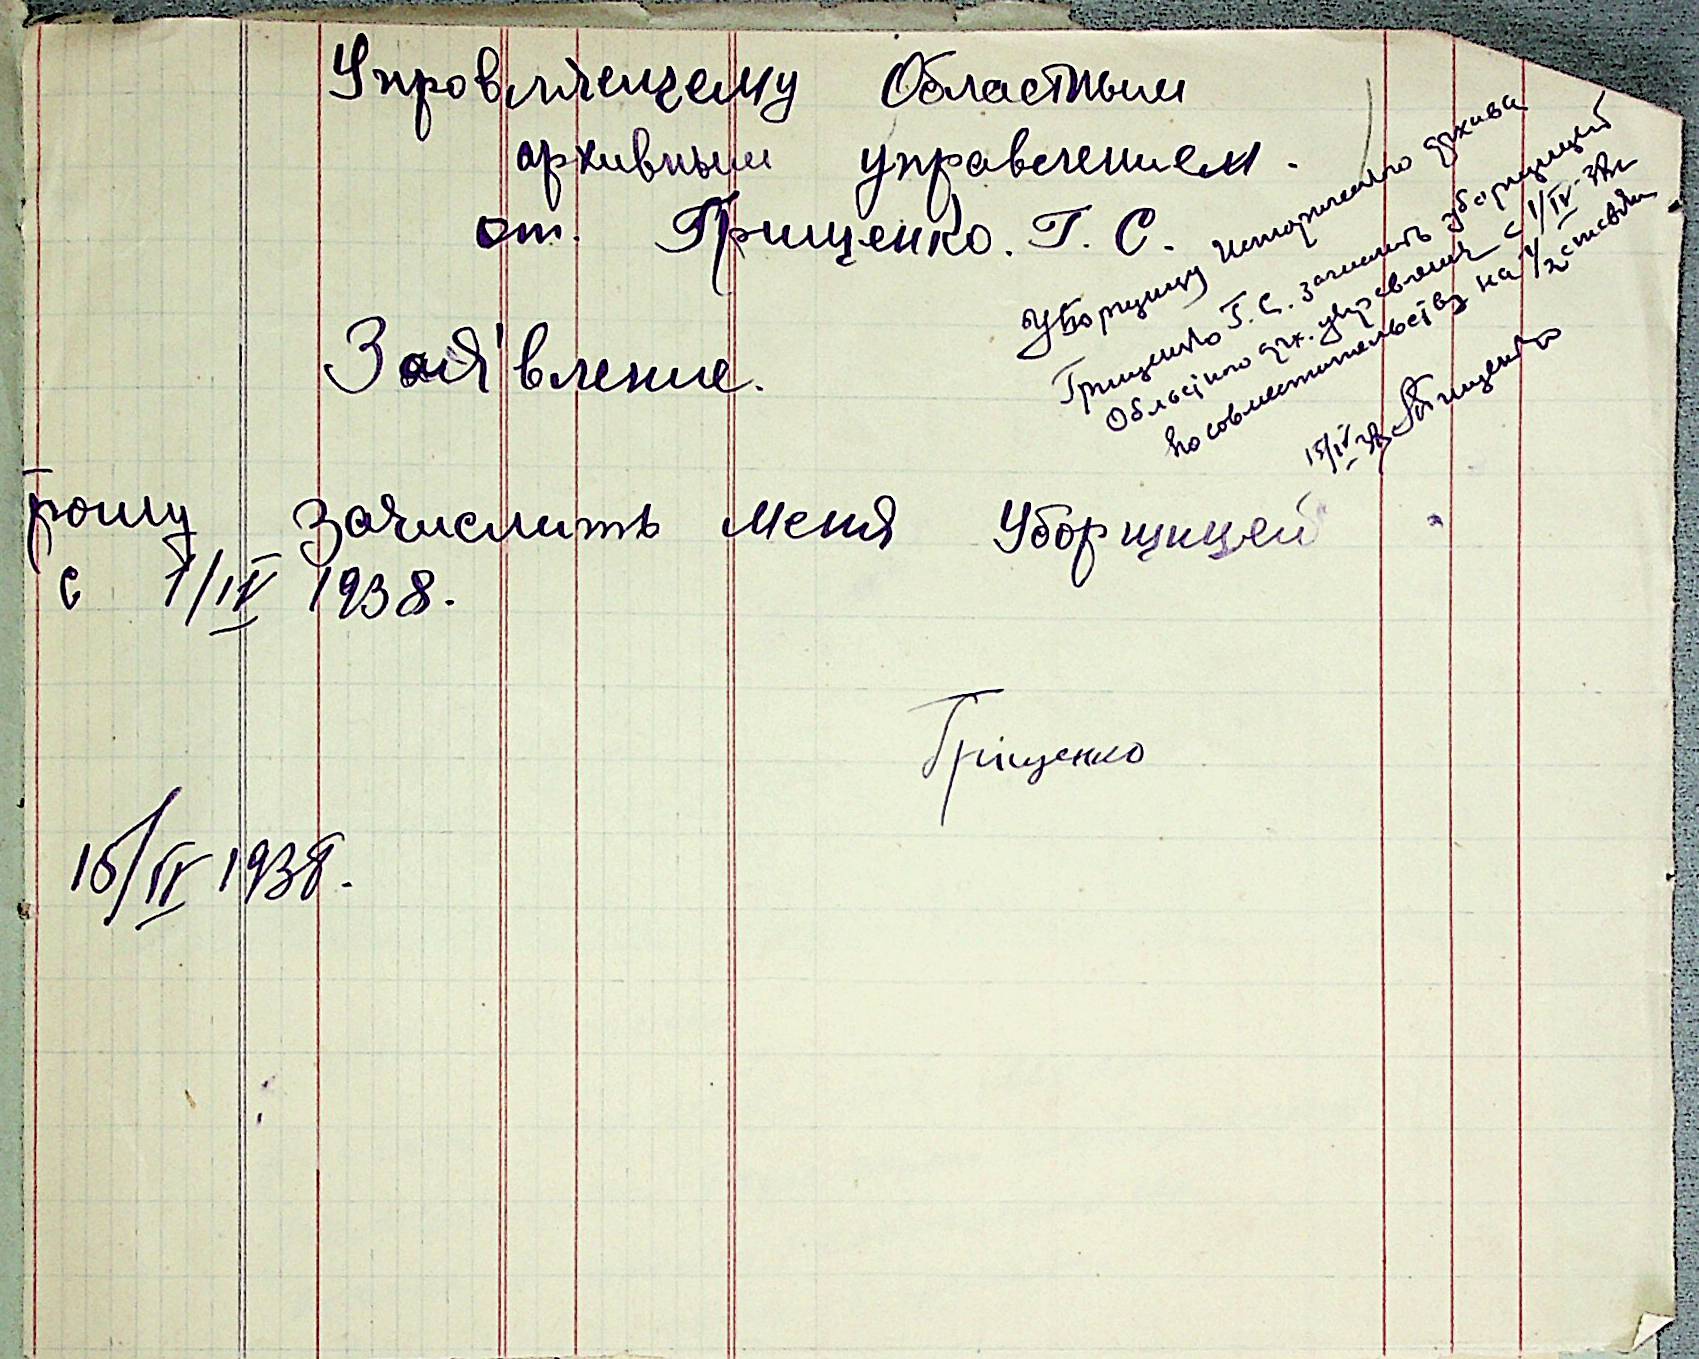 Упровляющему Областным
архивным управлением.
от. Грищенко. Г. С.
Заявление.
Прошу зачислить меня Уборщицей
с 1/IV 1938.
Грищенко
15/IV 1938.
Уборщицу исторического архива
Грищенко Г. С. зачислить уборщицей
Областного арх. управления с 1/IV-38г
по совместительству на 1/2 ставки
15/IV-38